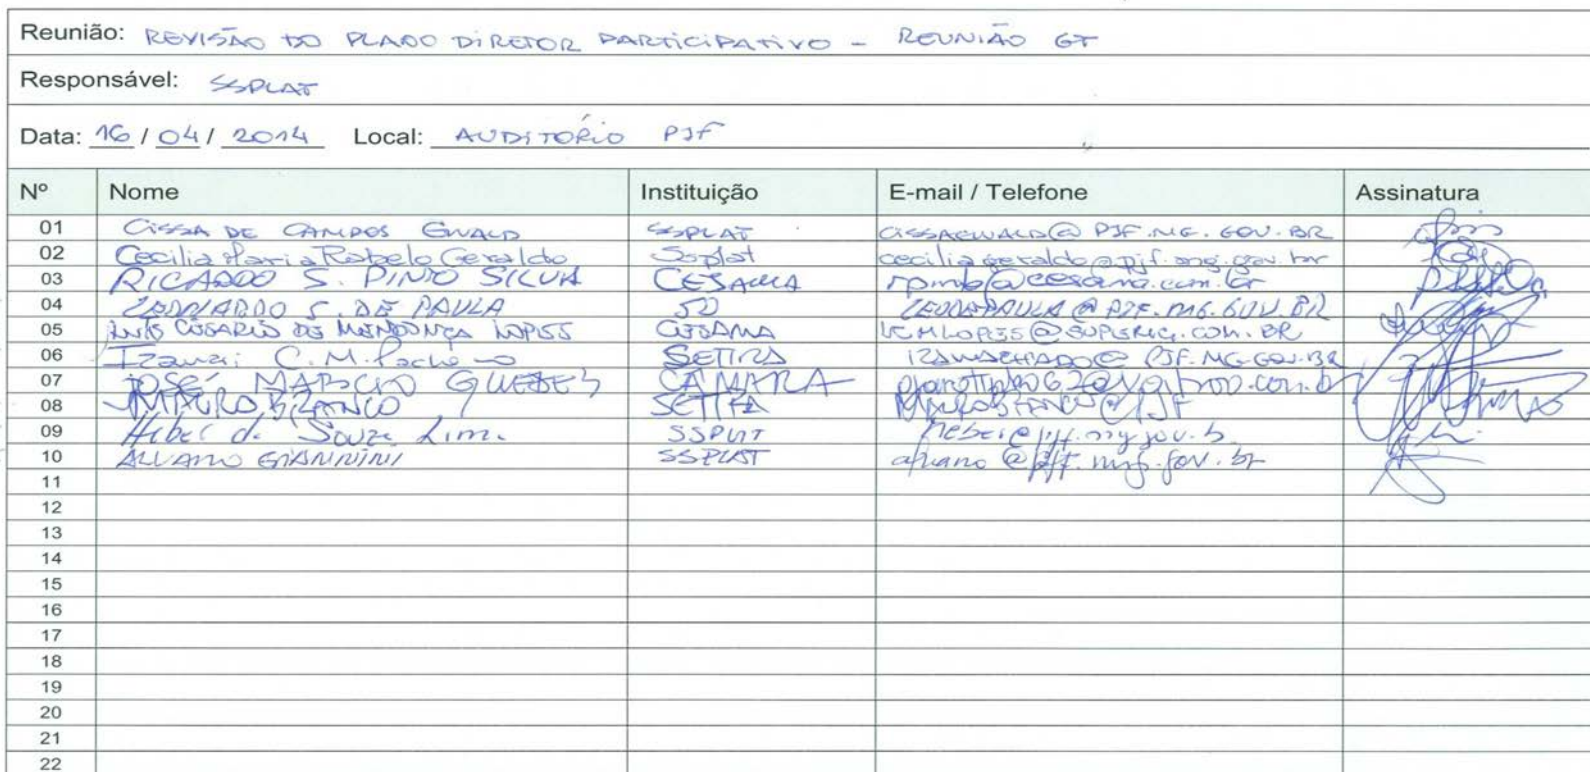 Reunião: REVISÃO DO PLANO DIRETOR PARTICIPATIVO - REUNIÃO GT
Responsável: SSPLAT
Data: 16 / 04 / 2014 Local: AUDITÓRIO PJF
Nº Nome Instituição E-mail / Telefone Assinatura
01 CISSA DE CAMPOS EWALD SSPLAT CISSAEWALD@PJF.MG.GOV.BR
02 Cecilia Maria Rabelo Geraldo Ssplat ceciliageraldo@pjf.mg.gov.br
03 RICARDO S. PINTO SILVA CESAMA @cesama.com.br
04 LEONARDO S. DE PAULA SO LEODEPAULA@PJF.MG.GOV.BR
05 LUIS CESARIO DE MENDONÇA LOPES CESAMA LCMLOPES@SUPERIG.COM.BR
06 C.M. SETTRA IZAMACHADO@PJF.MG.GOV.BR
07 JOSÉ MARCIO GUEDES CÂMARA
08 MAURO BRANCO SETTRA MAUROBRANCO@PJF
09 Heber de Souza Lima SSPLAT heber@pjf.mg.gov.b
10 ALVARO GIANNINI SSPLAT alvaro@pjf.mg.gov.br
11
12
13
14
15
16
17
18
19
20
21
22